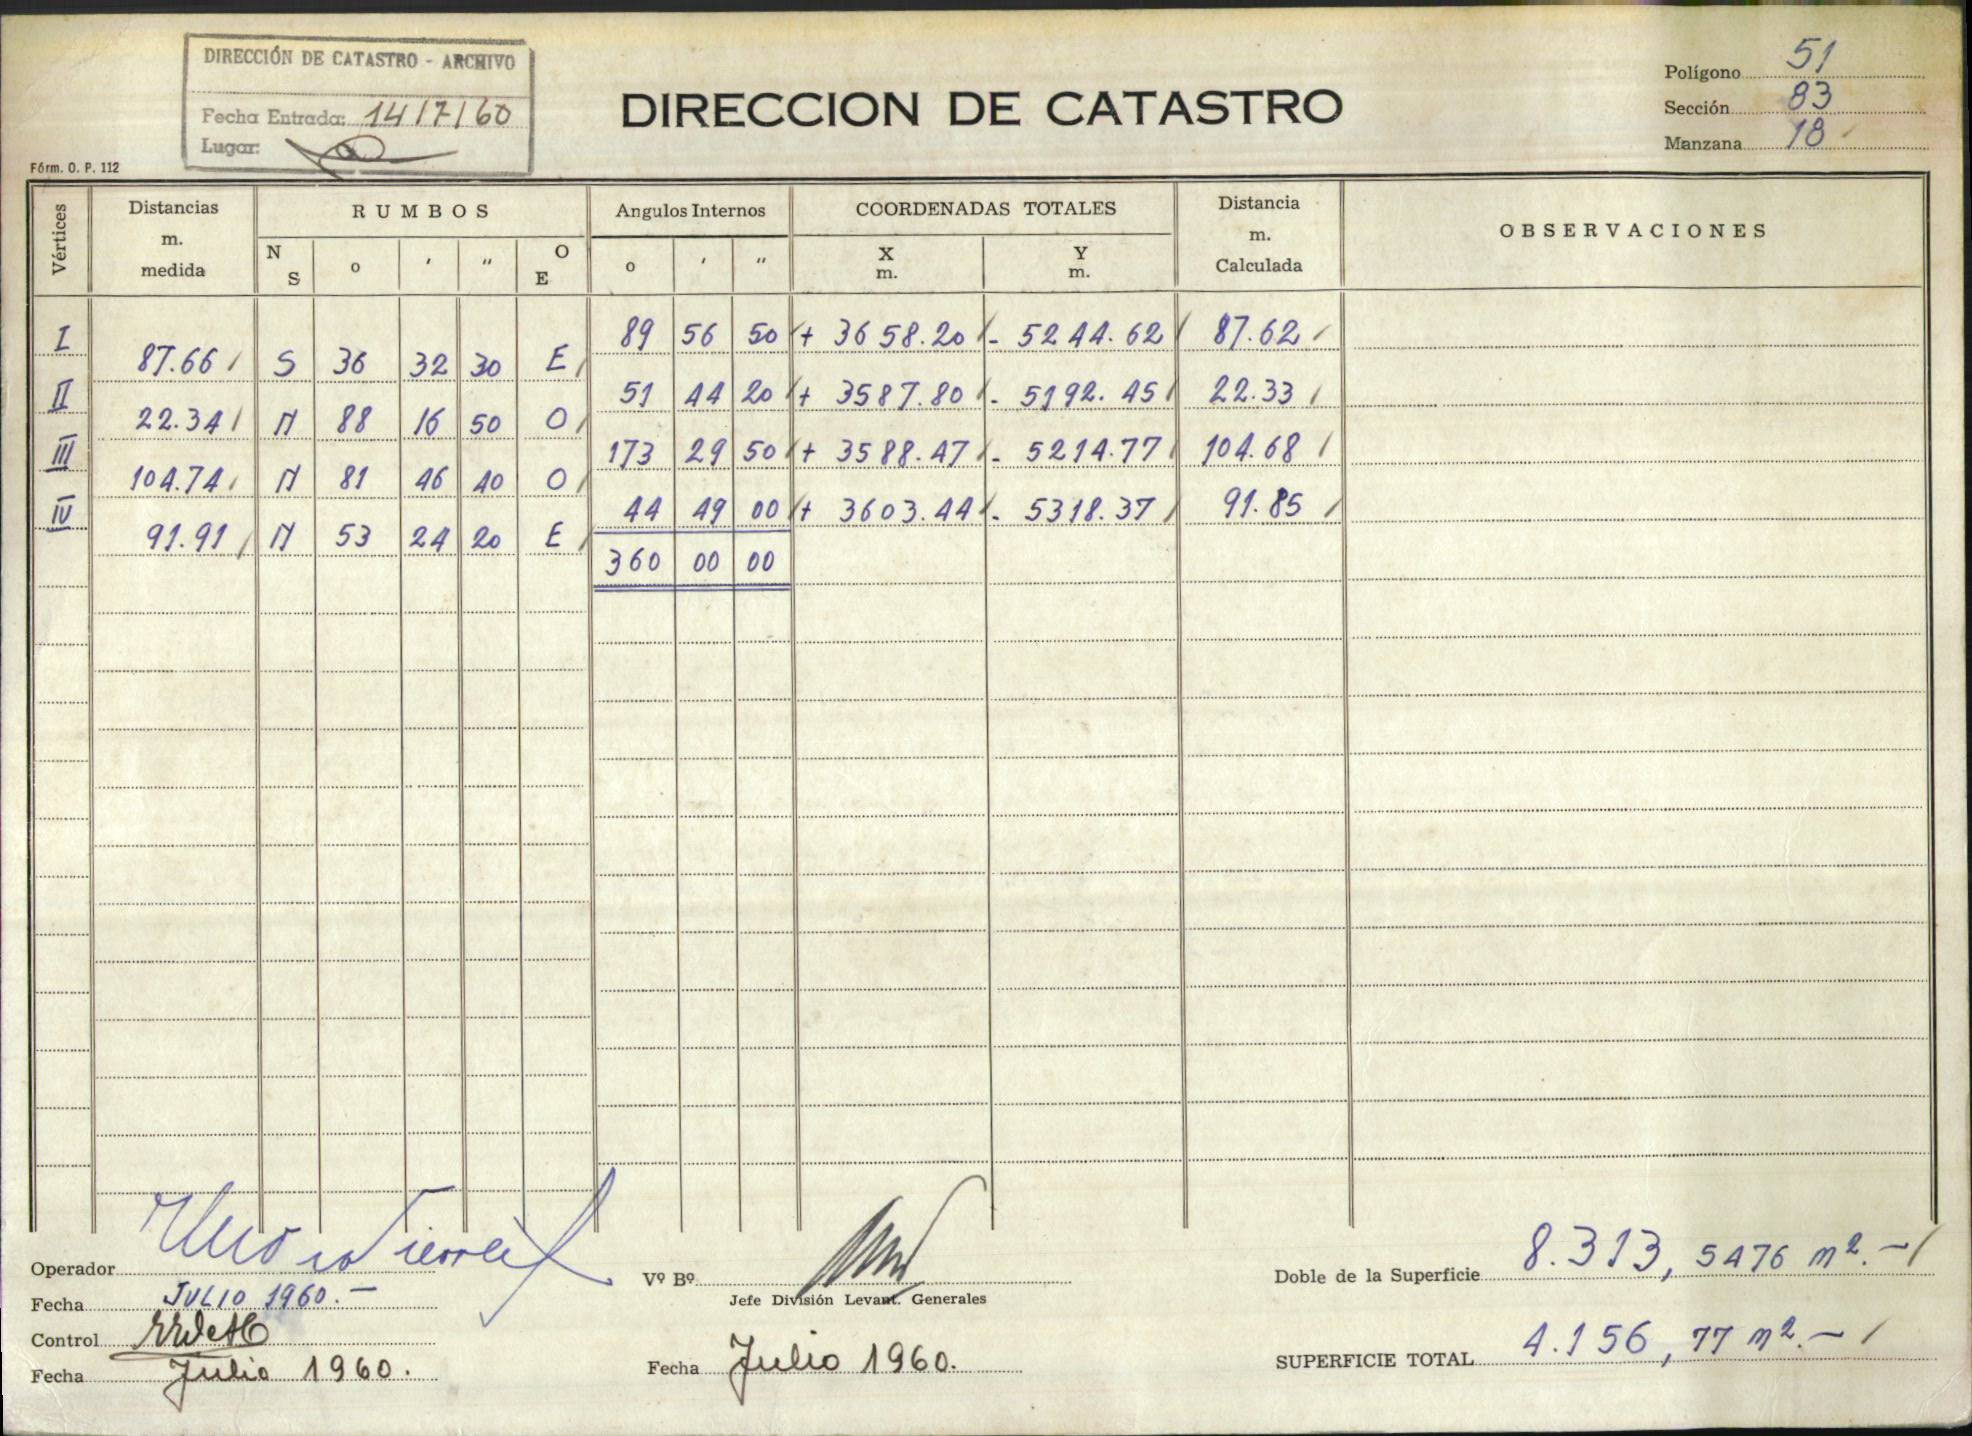 DIRECCIÓN DE CATASTRO - ARCHIVO
Fecha Entrada: 14/7/60
Lugar:
Fórm. O. P. 112
DIRECCION DE CATASTRO
Polígono 51
Sección 83
Manzana 18
Vértices Distancias m. medida RUMBOS N S o ′ ″ O E Angulos Internos o ′ ″ COORDENADAS TOTALES X m. Y m. Distancia m. Calculada OBSERVACIONES
I 89 56 50 + 3658.20 - 5244.62 87.62
87.66 S 36 32 30 E
II 51 44 20 + 3587.80 - 5192.45 22.33
22.34 N 88 16 50 O
III 173 29 50 + 3588.47 - 5214.77 104.68
104.74 N 81 46 40 O
IV 44 49 00 + 3603.44 - 5318.37 91.85
91.91 N 53 24 20 E
360 00 00
Operador
Fecha JULIO 1960.-
Control
Fecha Julio 1960.
Vº Bº
Jefe División Levant. Generales
Fecha Julio 1960.
Doble de la Superficie 8.313,5476 m².-
SUPERFICIE TOTAL 4.156,77 m².-